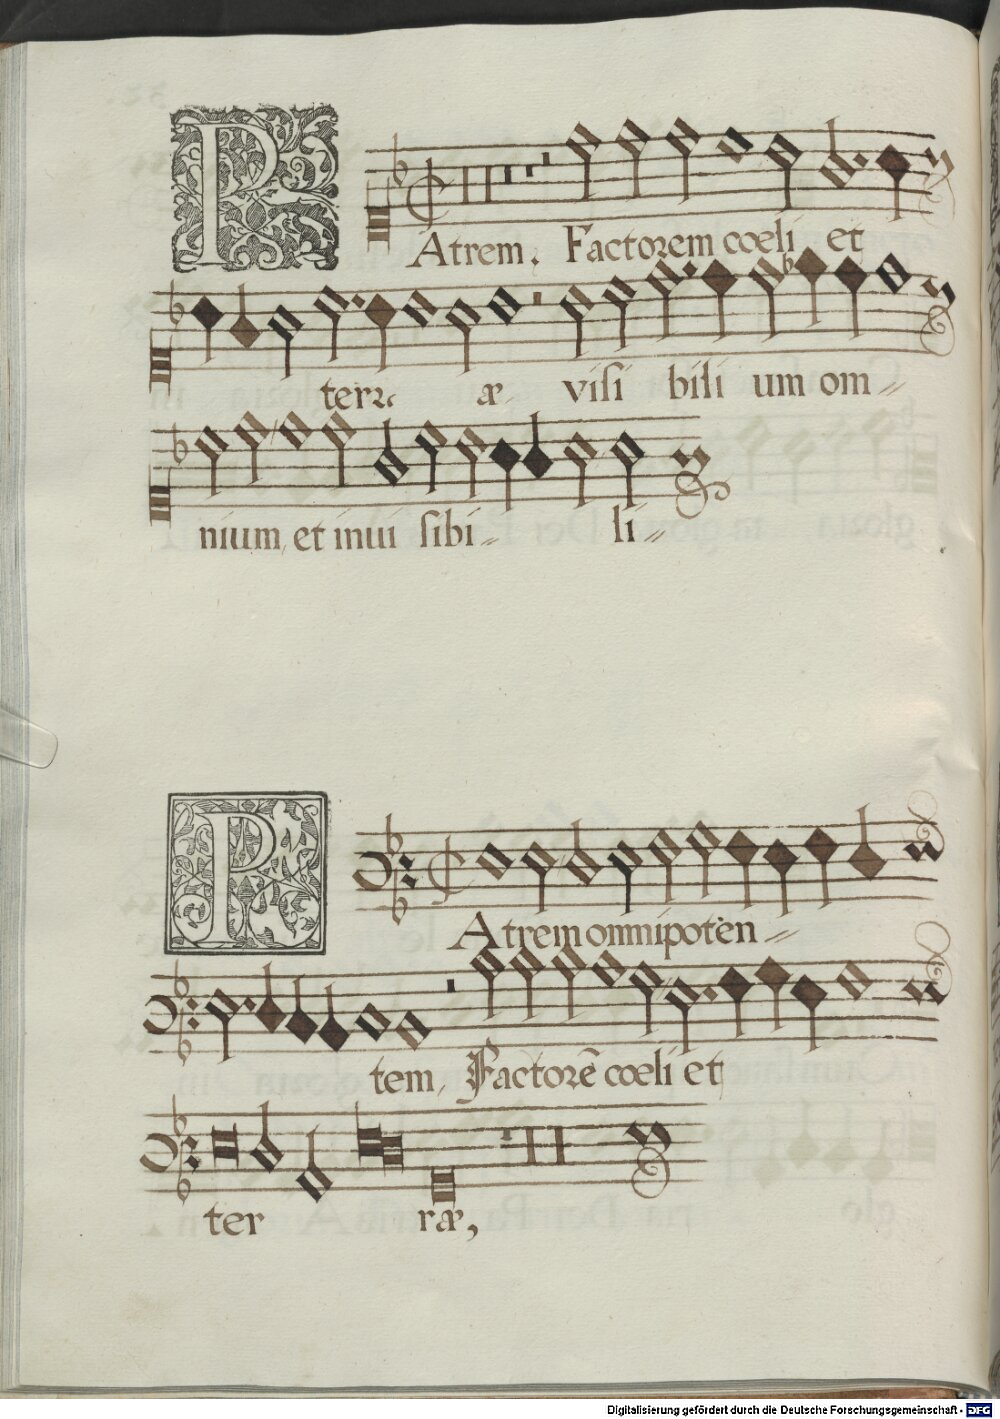 PAtrem. Factorem cœli et
terræ visi bili um om=
nium, et inui sibi= li=
PAtrem omnipoten=
tem, Factorē cœli et
ter ræ,
Digitalisierung gefördert durch die Deutsche Forschungsgemeinschaft - DFG